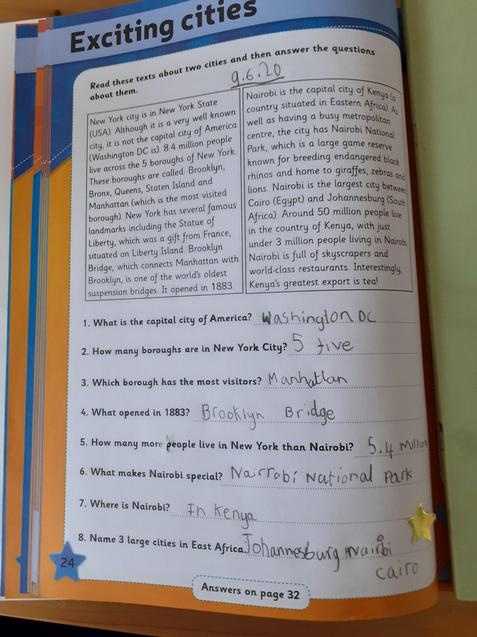 Exciting cities
Read these texts about two cities and then answer the questions
about them.
9.6.20
New York city is in New York State
(USA). Although it is a very well known
city, it is not the capital city of America
(Washington DC is). 8.4 million people
live across the 5 boroughs of New York.
These boroughs are called: Brooklyn,
Bronx, Queens, Staten Island and
Manhattan (which is the most visited
borough). New York has several famous
landmarks including the Statue of
Liberty, which was a gift from France,
situated on Liberty Island. Brooklyn
Bridge, which connects Manhattan with
Brooklyn, is one of the world's oldest
suspension bridges. It opened in 1883.
Nairobi is the capital city of Kenya (a
country situated in Eastern Africa). As
well as having a busy metropolitan
centre, the city has Nairobi National
Park, which is a large game reserve
known for breeding endangered black
rhinos and home to giraffes, zebras and
lions. Nairobi is the largest city between
Cairo (Egypt) and Johannesburg (South
Africa). Around 50 million people live
in the country of Kenya, with just
under 3 million people living in Nairobi.
Nairobi is full of skyscrapers and
world-class restaurants. Interestingly,
Kenya's greatest export is tea!
1. What is the capital city of America? Washington DC
2. How many boroughs are in New York City? 5 five
3. Which borough has the most visitors? Manhattan
4. What opened in 1883? Brooklyn Bridge
5. How many more people live in New York than Nairobi? 5.4 Million
6. What makes Nairobi special? Nairrobi National Park
7. Where is Nairobi? In kenya
8. Name 3 large cities in East Africa. Johannesburg nairobi
cairo
24
Answers on page 32